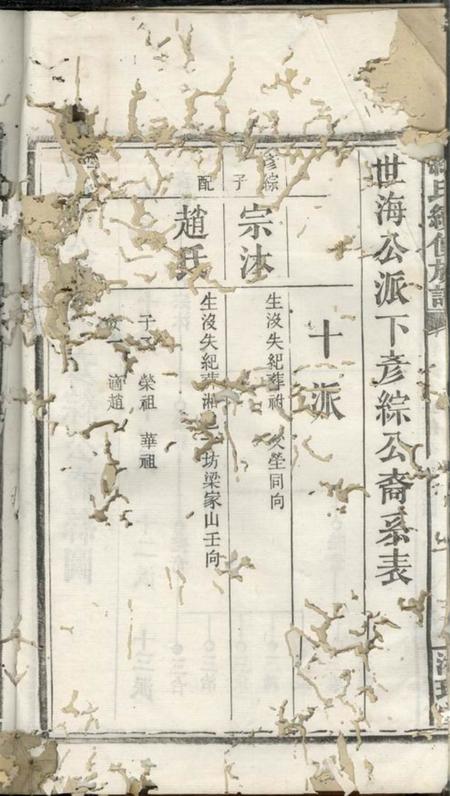 氏續修族譜
世海公派下彥綜公裔系表
十一派
彥綜子
宗沐
生沒失紀葬祔 塋同向
配
趙氏
生沒失紀葬湘 坊梁家山壬向
子二 榮祖 華祖
女一 適趙